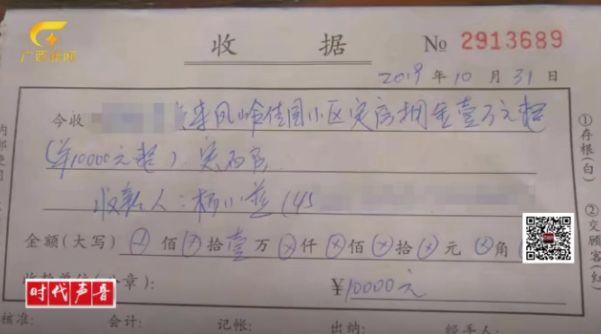 广西新闻
收 据 № 2913689
2019 年 10 月 31 日
今收 凤岭佳园小区买房押金壹万元整
(¥10000元整)
收款人:杨小
金额(大写) ⊗ 佰 ⊗ 拾 壹 万 ⊗ 仟 ⊗ 佰 ⊗ 拾 ⊗ 元 ⊗ 角
¥10000元
核准: 会计: 记帐: 出纳: 经手人:
①存根(白)
②交顾客(红)
时代声音